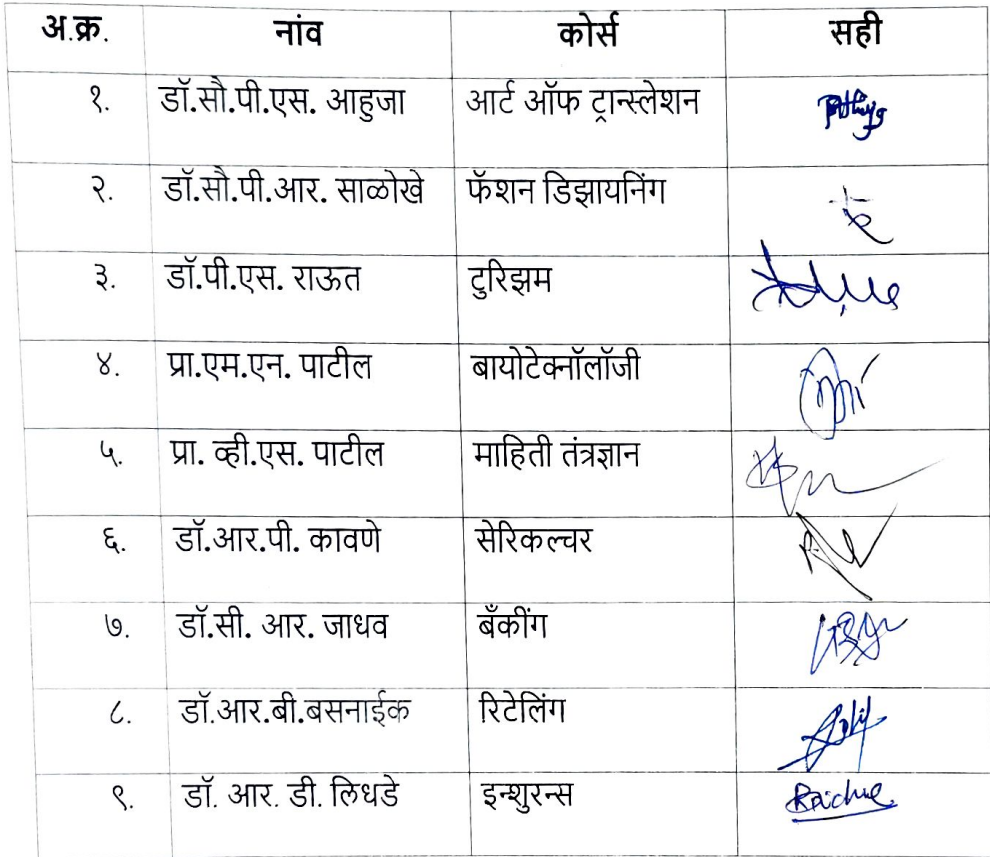 अ.क्र. नांव कोर्स सही
१. डॉ.सौ.पी.एस. आहुजा आर्ट ऑफ ट्रान्स्लेशन
२. डॉ.सौ.पी.आर. साळोखे फॅशन डिझायनिंग
३. डॉ.पी.एस. राऊत टुरिझम
४. प्रा.एम.एन. पाटील बायोटेक्नॉलॉजी
५. प्रा. व्ही.एस. पाटील माहिती तंत्रज्ञान
६. डॉ.आर.पी. कावणे सेरिकल्चर
७. डॉ.सी. आर. जाधव बँकींग
८. डॉ.आर.बी.बसनाईक रिटेलिंग
९. डॉ. आर. डी. लिधडे इन्शुरन्स